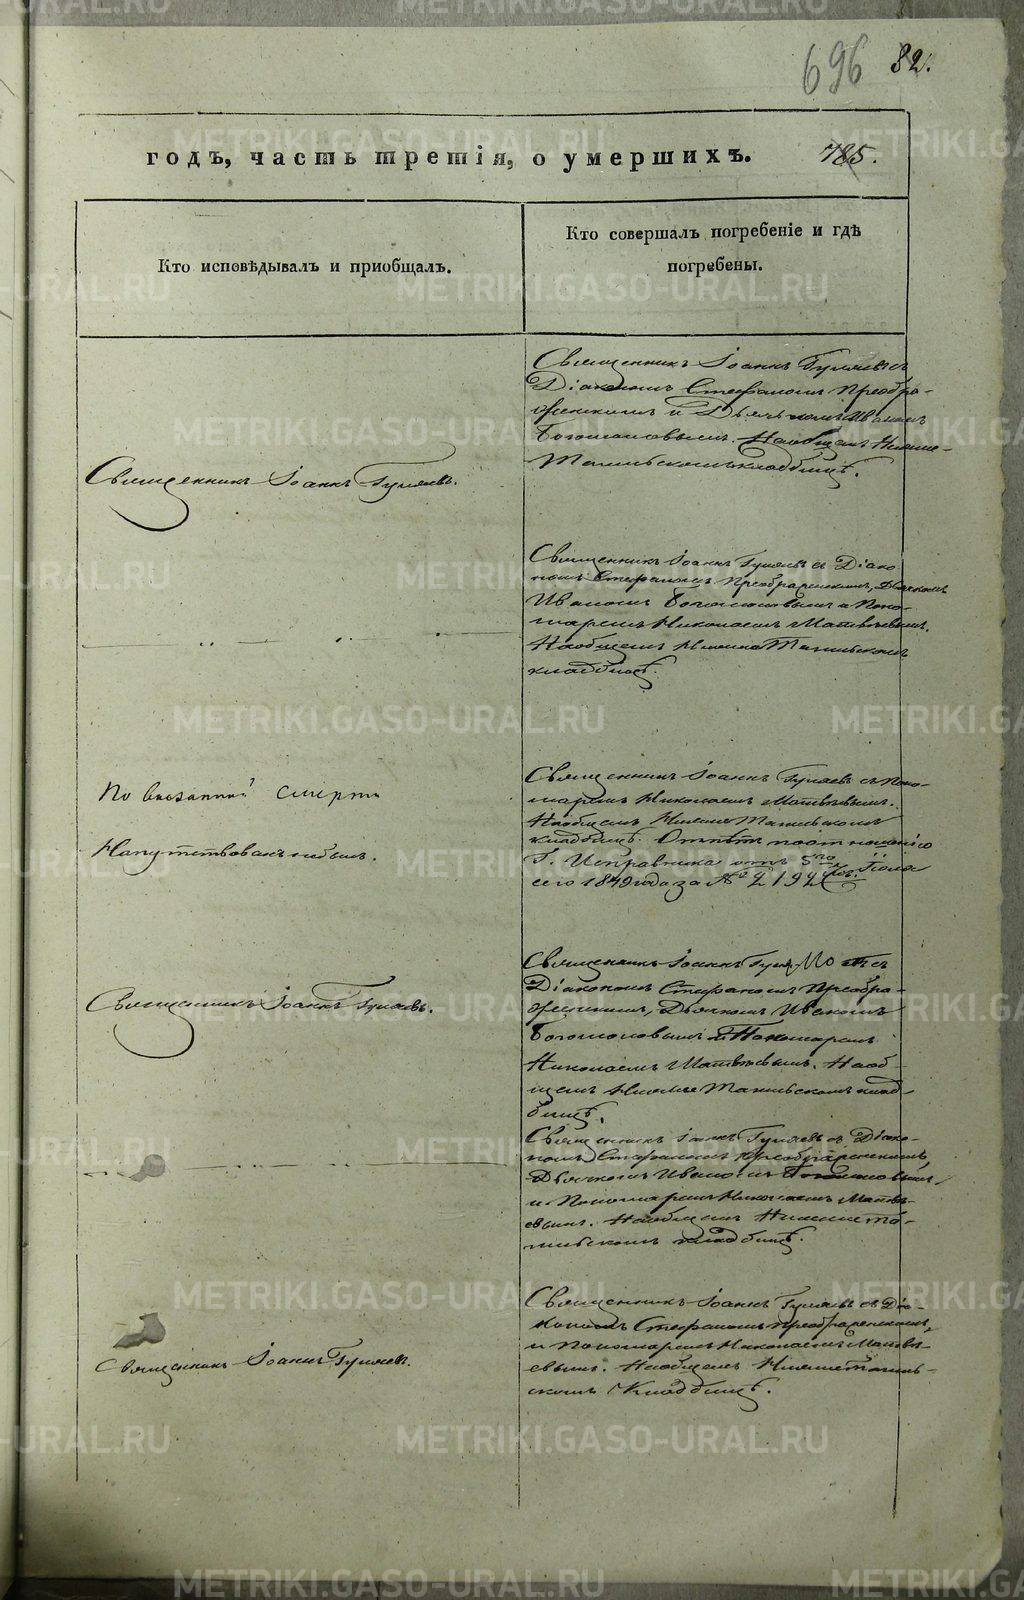 696 82.
годъ, часть третія, о умершихъ. 785.
Кто исповѣдывалъ и пріобщалъ.
Кто совершалъ погребеніе и гдѣ
погребены.
Священникъ Іоаннъ Гуляевъ.
Священникъ Іоаннъ Гуляевъ съ
Діакономъ Стефаномъ Преобра-
женскимъ и Дьячкомъ Иваномъ
На общемъ Нижне-
Тагильскомъ кладбищѣ.
Священникъ Іоаннъ Гуляевъ съ Діако
номъ Стефаномъ Преображенскимъ, Дьячкомъ
Иваномъ и Поно-
маремъ Николаемъ Матвѣевымъ.
На общемъ Нижне Тагильскомъ
кладбищѣ.
По внезапной смерти
Напутствованъ не былъ.
Священникъ Іоаннъ Гуляевъ съ Поно-
маремъ Николаемъ Матвѣевымъ.
На общемъ Нижне Тагильскомъ
кладбищѣ. Отпѣтъ по отношенію
Г. Исправника отъ 5го Іюля
сего 1849 года за № 2192
Священникъ Іоаннъ Гуляевъ.
Священникъ Іоаннъ съ
Діакономъ Стефаномъ Преобра-
женскимъ, Дьячкомъ Иваномъ
и Пономаремъ
Николаемъ Матвѣевымъ. На об-
щемъ Нижне Тагильскомъ клад-
бищѣ.
Священникъ Іоаннъ Гуляевъ съ Діако-
номъ Стефаномъ Преображенскимъ,
Дьячкомъ Иваномъ
и Пономаремъ Николаемъ Матвѣ-
евымъ. На общемъ Нижне Та-
гильскомъ кладбищѣ.
Священникъ Іоаннъ Гуляевъ.
Священникъ Іоаннъ Гуляевъ съ Діа-
кономъ Стефаномъ Преображенскимъ,
и Пономаремъ Николаемъ Матвѣ-
евымъ. На общемъ Нижне Тагиль-
скомъ Кладбищѣ.
METRIKI.GASO-URAL.RU